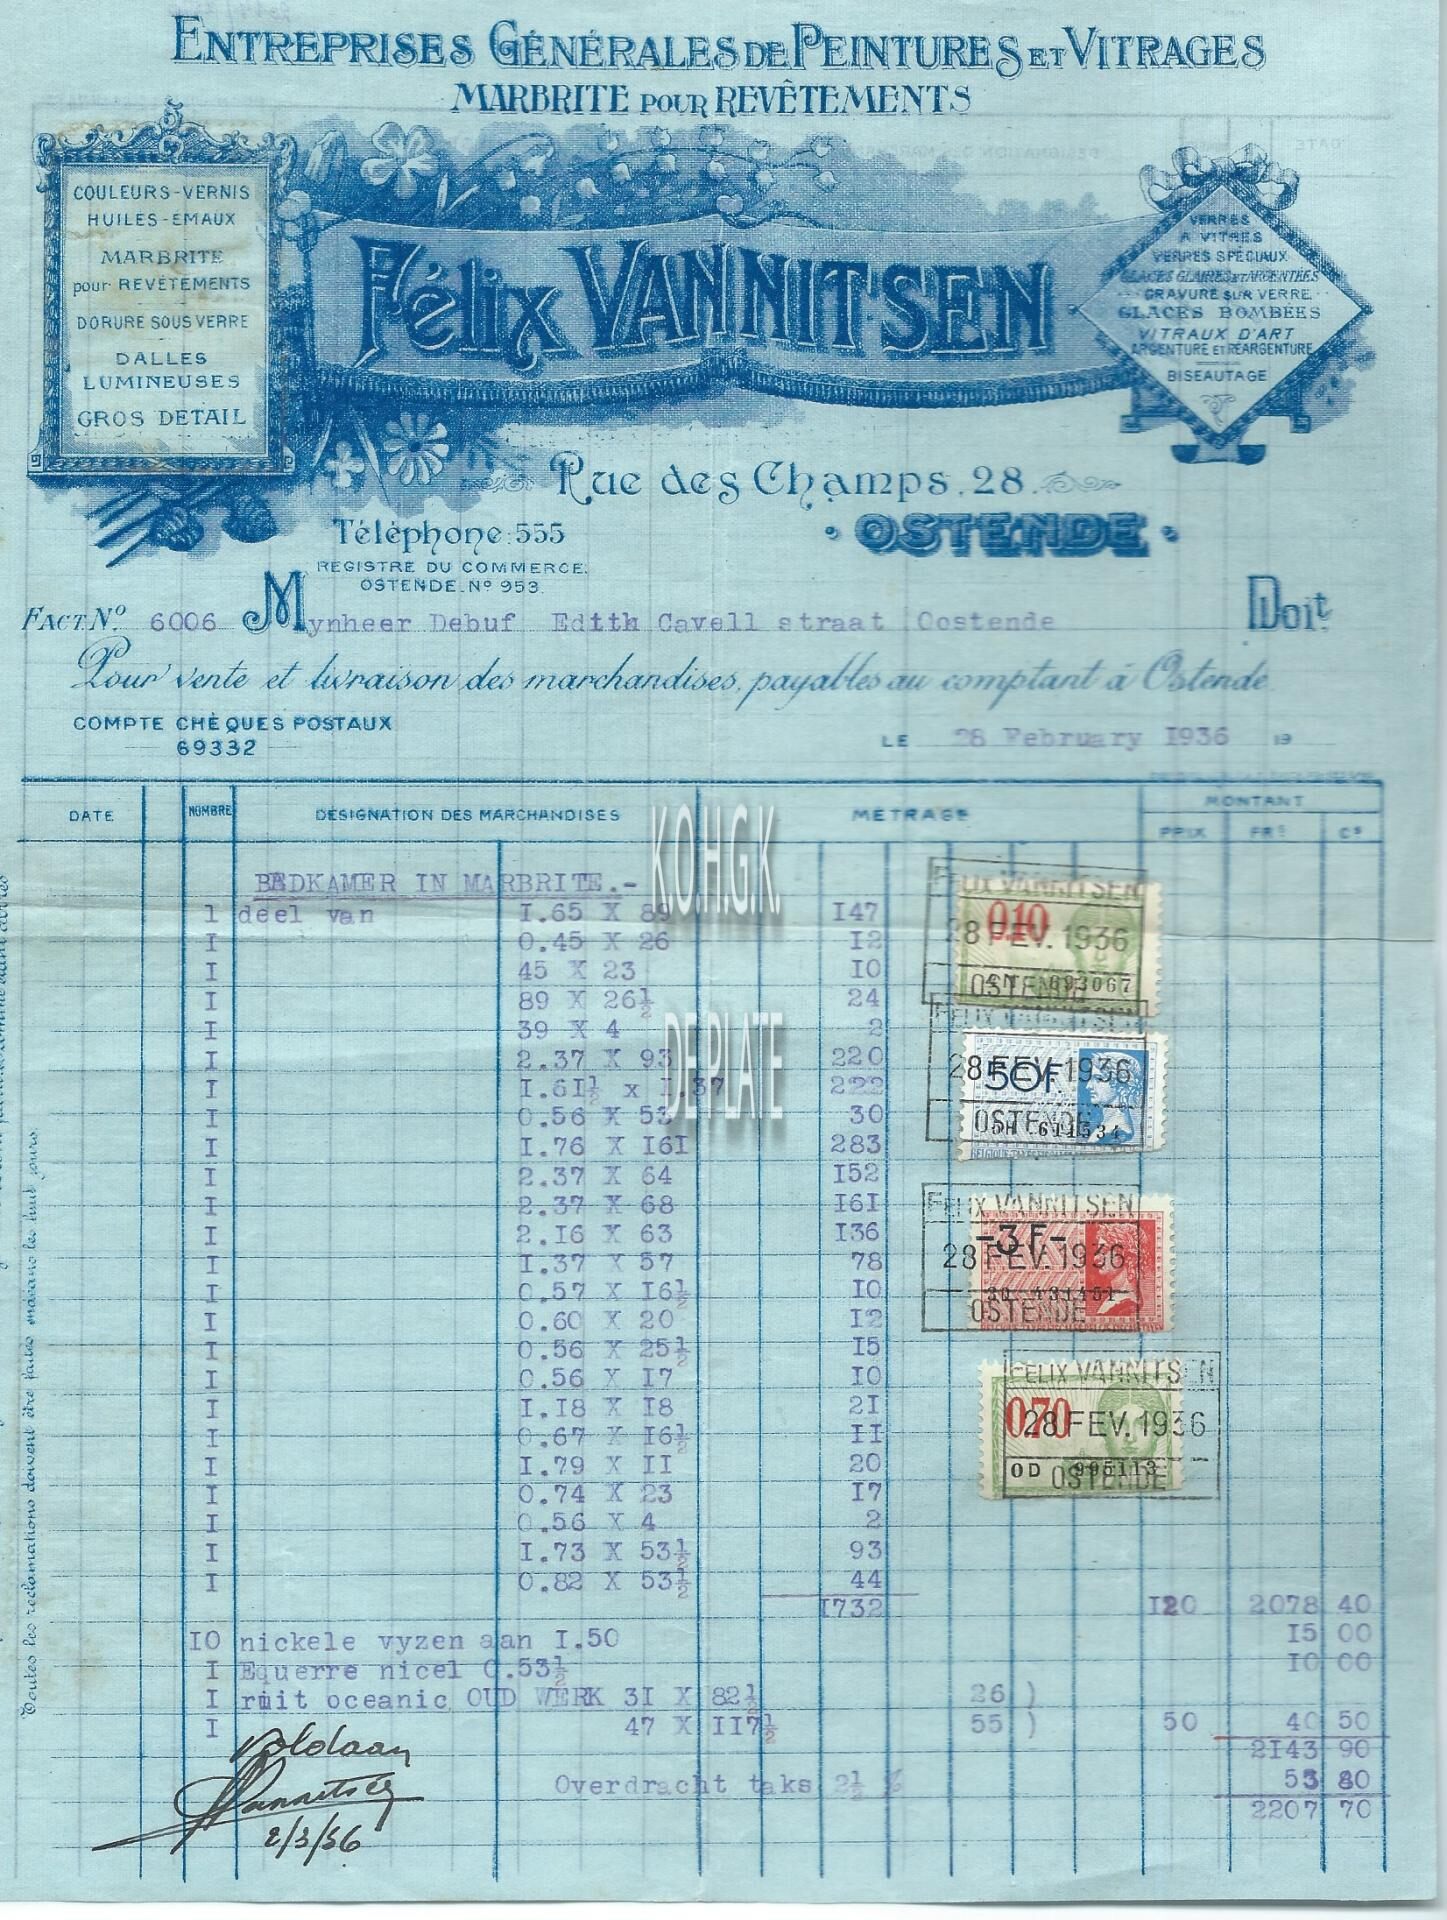 ENTREPRISES GÉNÉRALES DE PEINTURES ET VITRAGES
MARBRITE POUR REVÊTEMENTS
COULEURS-VERNIS
HUILES-EMAUX
MARBRITE
pour REVÊTEMENTS
DORURE SOUS VERRE
DALLES
LUMINEUSES
GROS DETAIL
Félix VANNITSEN
VERRES
A VITRES
VERRES SPÉCIAUX
GLACES CLAIRES ET ARGENTÉES
GRAVURE SUR VERRE
GLACES BOMBÉES
VITRAUX D'ART
ARGENTURE ET RÉARGENTURE
BISEAUTAGE
Rue des Champs, 28
OSTENDE
Téléphone: 555
REGISTRE DU COMMERCE
OSTENDE. No 953.
FACT. No 6006 Mynheer Debuf Edith Cavell straat Oostende Doit
Pour vente et livraison des marchandises, payables au comptant à Ostende
COMPTE CHÈQUES POSTAUX
69332
LE 28 February 1936 19
DATE NOMBRE DÉSIGNATION DES MARCHANDISES METRAGE MONTANT
PRIX FRS CS
BADKAMER IN MARBRITE.-
1 deel van I.65 X 89 I47
I 0.45 X 26 I2
I 45 X 23 IO
I 89 X 26½ 24
I 39 X 4 2
I 2.37 X 93 220
I I.6I½ x I.37 222
I 0.56 X 53 30
I I.76 X I6I 283
I 2.37 X 64 I52
I 2.37 X 68 I6I
I 2.I6 X 63 I36
I I.37 X 57 78
I 0.57 X I6½ IO
I 0.60 X 20 I2
I 0.56 X 25½ I5
I 0.56 X I7 IO
I I.I8 X I8 2I
I 0.67 X I6½ II
I I.79 X II 20
I 0.74 X 23 I7
I 0.56 X 4 2
I I.73 X 53½ 93
I 0.82 X 53½ 44
I732 I20 2078 40
IO nickele vyzen aan I.50 I5 00
I Equerre nicel 0.53½ IO 00
I ruit oceanic OUD WERK 3I X 82½ 26 )
I 47 X II7½ 55 ) 50 40 50
2I43 90
Overdracht taks 2½ % 53 80
2207 70
Voldaan
Vannitsen
2/3/36
Toutes les réclamations doivent être faites endéans les huit jours.
K.O.H.G.K.
DE PLATE
FELIX VANNITSEN
0.10
28 FEV. 1936
693067
OSTENDE
FELIX VANNITSEN
50F.
28 FEV. 1936
611534
OSTENDE
FELIX VANNITSEN
-3F-
28 FEV. 1936
OSTENDE
FELIX VANNITSEN
0.70
28 FEV. 1936
OD 995113
OSTENDE